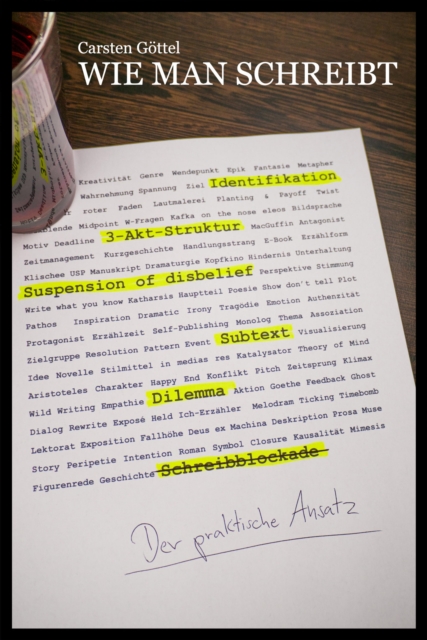 Carsten Göttel
WIE MAN SCHREIBT
Kreativität Genre Wendepunkt Epik Fantasie Metapher
Wahrnehmung Spannung Ziel Identifikation
roter Faden Lautmalerei Planting & Payoff Twist
Midpoint W-Fragen Kafka on the nose eleos Bildsprache
Motiv Deadline 3-Akt-Struktur MacGuffin Antagonist
Zeitmanagement Kurzgeschichte Handlungsstrang E-Book Erzählform
Klischee USP Manuskript Dramaturgie Kopfkino Hindernis Unterhaltung
Suspension of disbelief Perspektive Stimmung
Write what you know Katharsis Hauptteil Poesie Show don't tell Plot
Pathos Inspiration Dramatic Irony Tragödie Emotion Authenzität
Protagonist Erzählzeit Self-Publishing Monolog Thema Assoziation
Zielgruppe Resolution Pattern Event Subtext Visualisierung
Idee Novelle Stilmittel in medias res Katalysator Theory of Mind
Aristoteles Charakter Happy End Konflikt Pitch Zeitsprung Klimax
Wild Writing Empathie Dilemma Aktion Goethe Feedback Ghost
Dialog Rewrite Exposé Held Ich-Erzähler Melodram Ticking Timebomb
Lektorat Exposition Fallhöhe Deus ex Machina Deskription Prosa Muse
Story Peripetie Intention Roman Symbol Closure Kausalität Mimesis
Figurenrede Geschichte Schreibblockade
Der praktische Ansatz